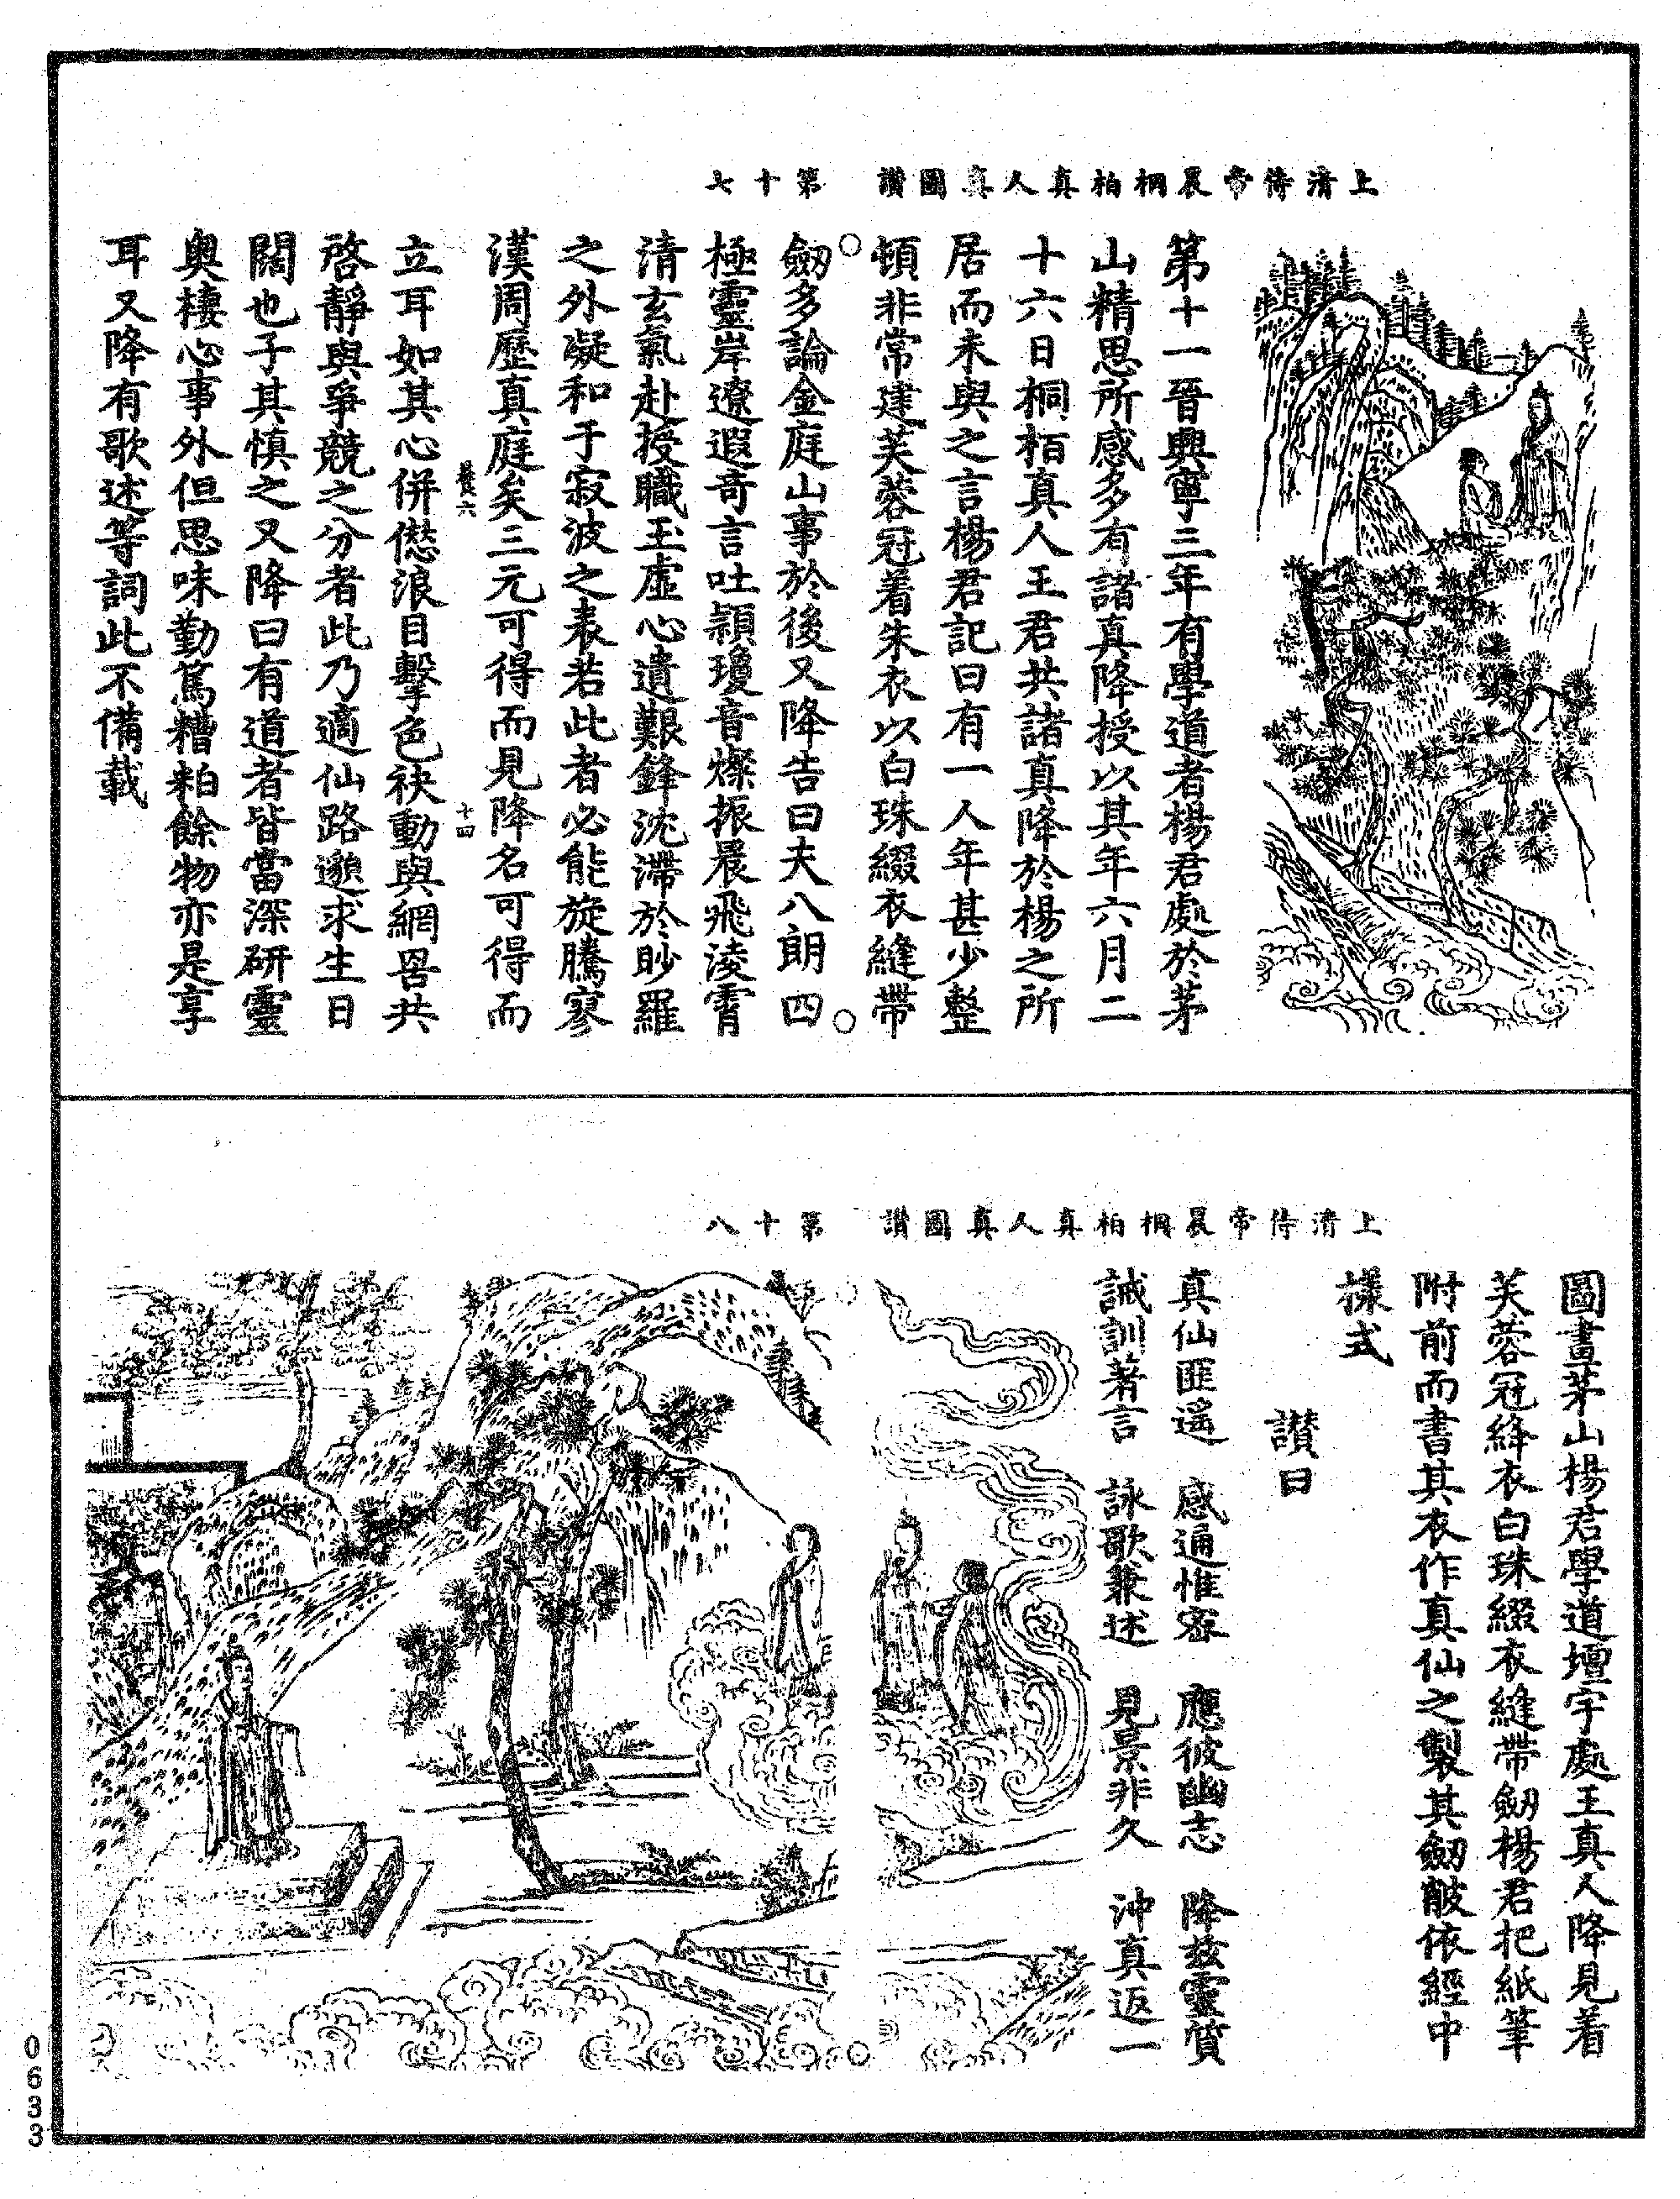 上清侍帝晨桐柏真人真圖讚　第十七
第十一晉興寧三年有學道者楊君處於茅
山精思所感多有諸真降授以其年六月二
十六日桐栢真人王君共諸真降於楊之所
居而未與之言楊君記曰有一人年甚少整
頓非常建芙蓉冠着朱衣以白珠綴衣縫帶
劒多論金庭山事於後又降告曰夫八朗四
極靈岸遼遐奇言吐穎瓊音燦振晨飛淩霄
清玄氣赴授職玉虛心遺艱鋒沈滯於眇羅
之外凝和于寂波之表若此者必能旋騰寥
漢周歷真庭矣三元可得而見降名可得而
十四
立耳如其心併愆浪目擊色袂動與網罟共
啓靜與爭競之分者此乃適仙路邈求生日
闊也子其慎之又降曰有道者皆當深研靈
奧棲心事外但思味勤篤糟粕餘物亦是享
耳又降有歌述等詞此不備載
上清侍帝晨桐柏真人真圖讚　第十八
圖畫茅山楊君學道壇宇處王真人降見着
芙蓉冠絳衣白珠綴衣縫帶劒楊君把紙筆
附前而書其衣作真仙之製其劒帔依經中
樣式
讚曰
真仙匪遥　感通惟密　應彼幽志　降兹靈質
誡訓著言　詠歌兼述　見景非久　沖真返一
0633